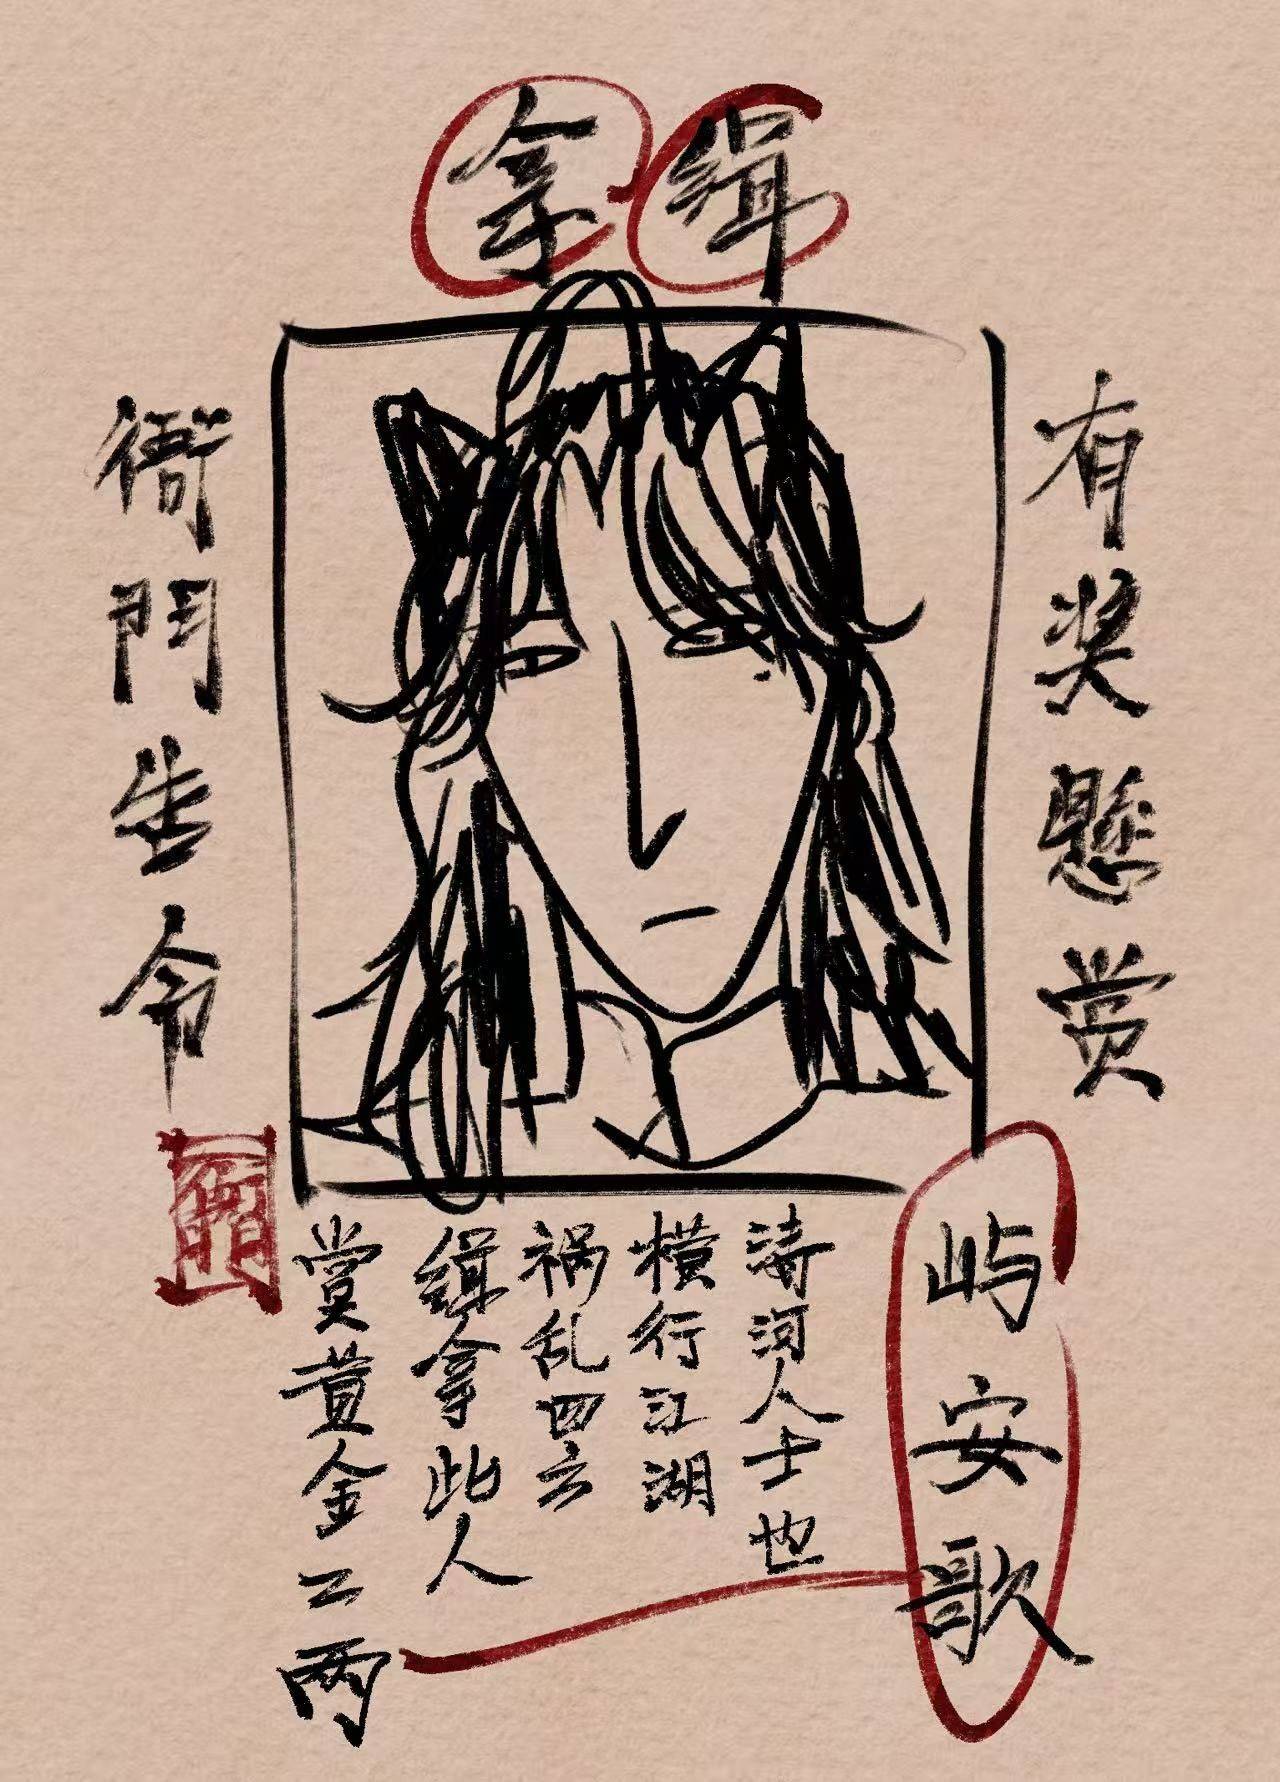 缉拿
有奖懸赏
衙門告令
屿安歌
清河人士也
横行江湖
祸乱四方
缉拿此人
赏黄金二两
衙門